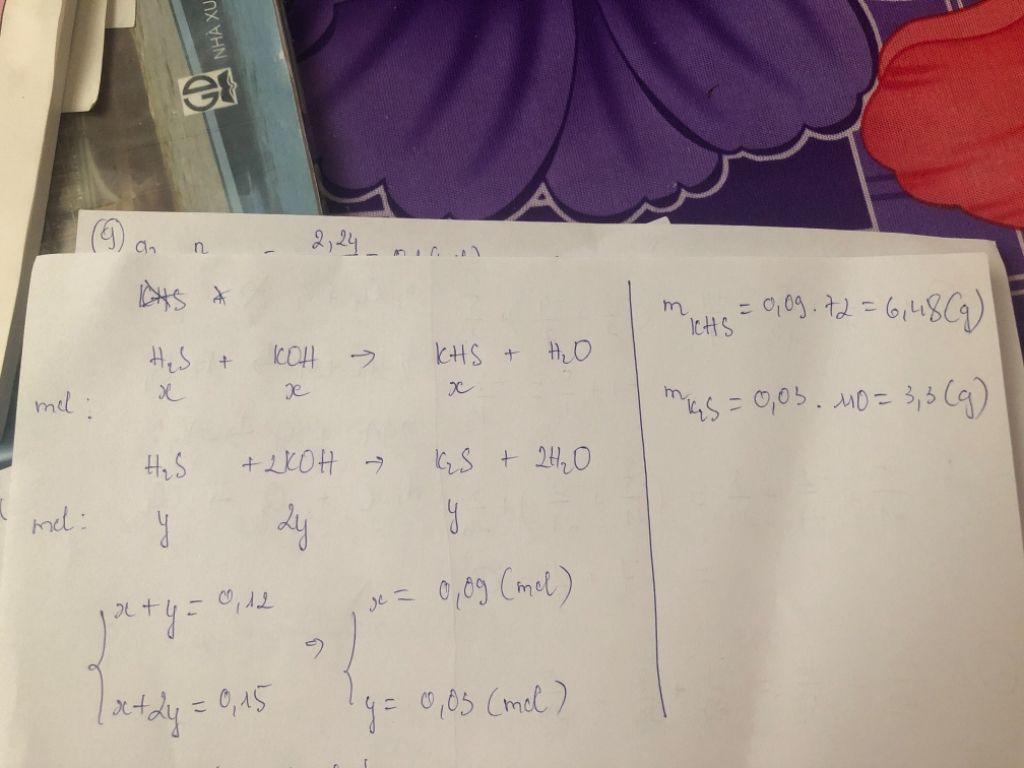 NHÀ XU
GD
(9) a, n = 2,24
H₂S + KOH → KHS + H₂O
mol: x x x
H₂S + 2KOH → K₂S + 2H₂O
mol: y 2y y
{ x + y = 0,12 → { x = 0,09 (mol)
x + 2y = 0,15 y = 0,03 (mol)
m KHS = 0,09 . 72 = 6,48 (g)
m K₂S = 0,03 . 110 = 3,3 (g)